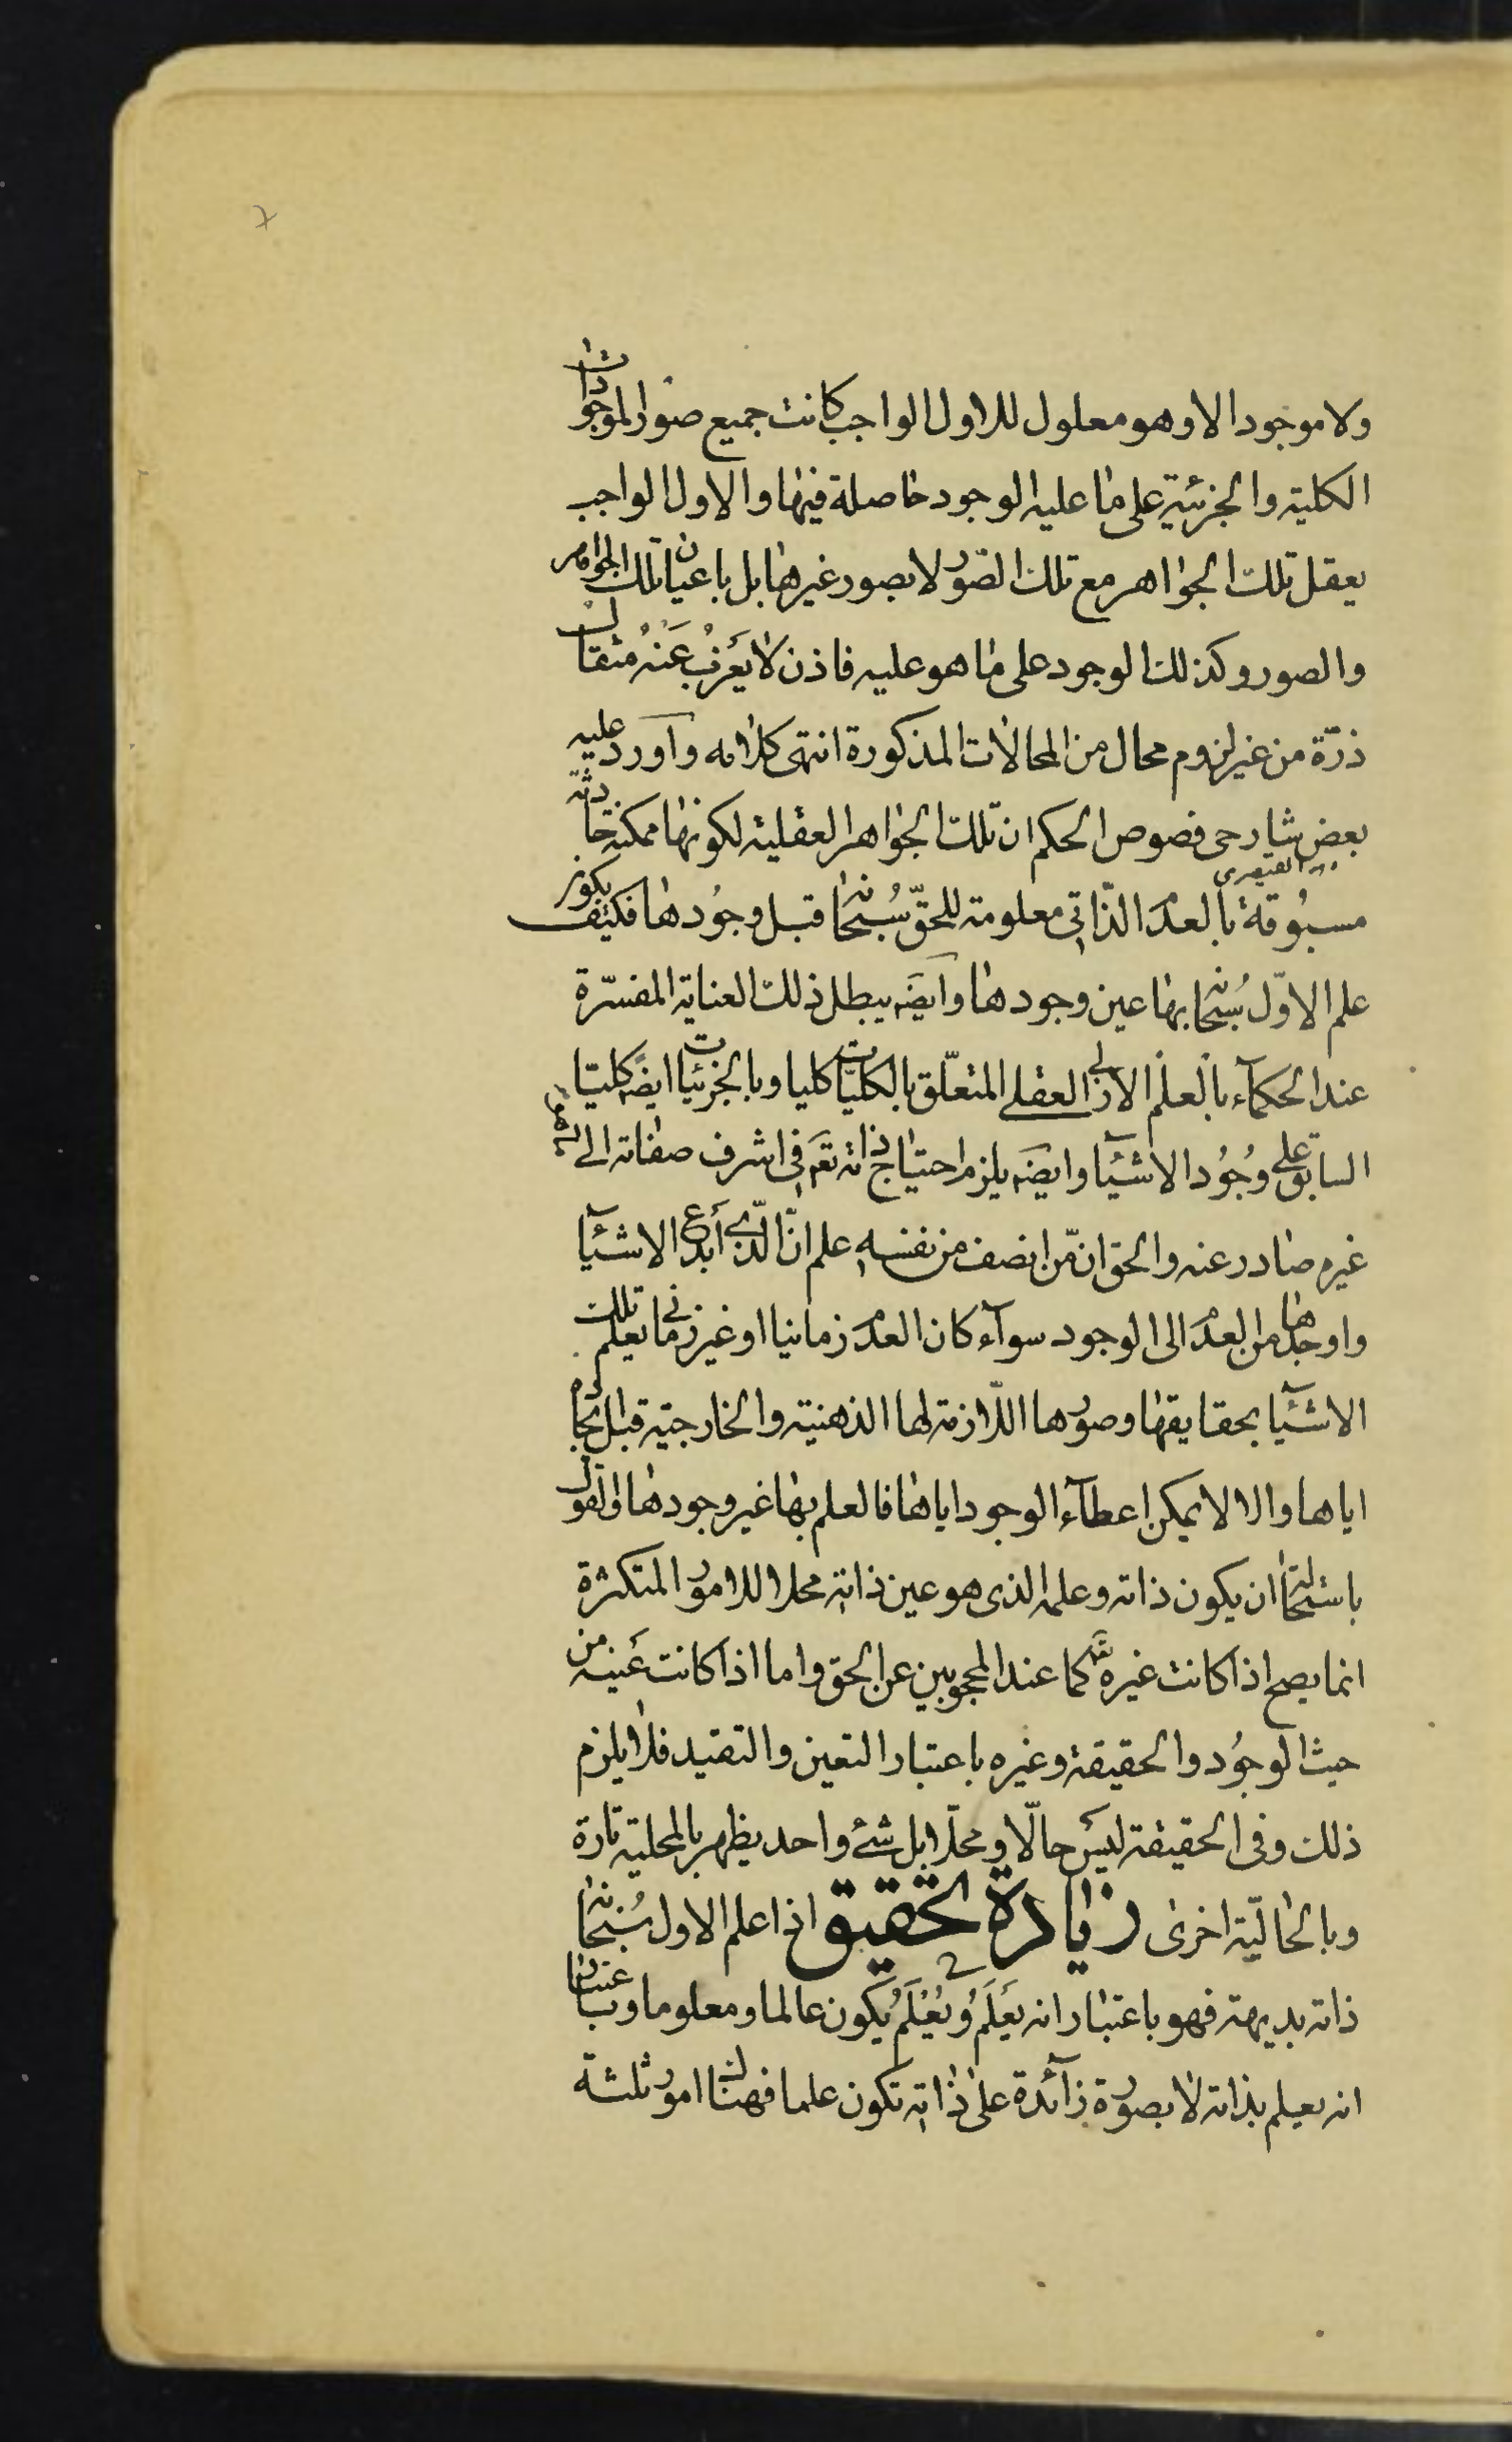 ولا موجود الا وهو معلول للاول الواجب كانت جميع صور الموجودات
الكلية والجزئية على ما عليه الوجود حاصلة فيها والاول الواجب
يعقل تلك الجواهر مع تلك الصّور لا بصور غيرها بل باعيان تلك الجواهر
والصور وكذلك الوجود على ما هو عليه فاذن لا يَعْزُبُ عَنْهُ مثقال
ذرّة من غير لزوم محال من المحالات المذكورة انتهى كلامه وأورد عليه
بعض شارحى فصوص الحكم ان تلك الجواهر العقلية لكونها ممكنة حادثة
القيصرى
مسبُوقة بالعدم الذّاتى معلومة للحقّ سُبحانه قبل وجُودها فكيف يكون
علم الاوّل سُبحانه بها عين وجودها وايضَه يبطل ذلك العناية المفسّرة
عند الحكمآء بالعلم الازلى العقلى المتعلّق بالكليّات كليا وبالجزئيات ايضً كليّا
السابق على وجُود الاشيآ وايضَه يلزم احتياج ذاته تعَم فى اشرف صفاته الى ما هو
غيره صادر عنه والحق انّ من انصف من نفسه علم انّ الّذى أبدع الاشيآ
واوجدها من العدم الى الوجود سوآء كان العدم زمانيا او غير زمانى يعلم تلك
الاشيآ بحقايقها وصورها اللّازمة لها الذهنية والخارجيّة قبل ايجاده
اياها والا لا يمكن اعطآء الوجود اياها فالعلم بها غير وجودها والقول
باستحالة ان يكون ذاته وعلمه الذى هو عين ذاته محلا للامور المتكثرة
انما يصح اذا كانت غيره تعَ كما عند المحجوبين عن الحق واما اذا كانت عَينه من
حيث الوجُود والحقيقة وغيره باعتبار التعين والتقيد فلا يلزم
ذلك وفى الحقيقة ليسَ حالّا و محلّا بل شئ واحد يظهر بالمحلية تارة
وبالحاليّة اخرى زيادة تحقيق اذا علم الاول سُبحانه
ذاته بديهة فهو باعتبار انه يَعلَمُ ويُعْلَمُ يكون عالما ومعلوما وباعتبار
انه يعلم بذاته لا بصورة زآئدة على ذاته تكون علما فهناك امور ثلثة